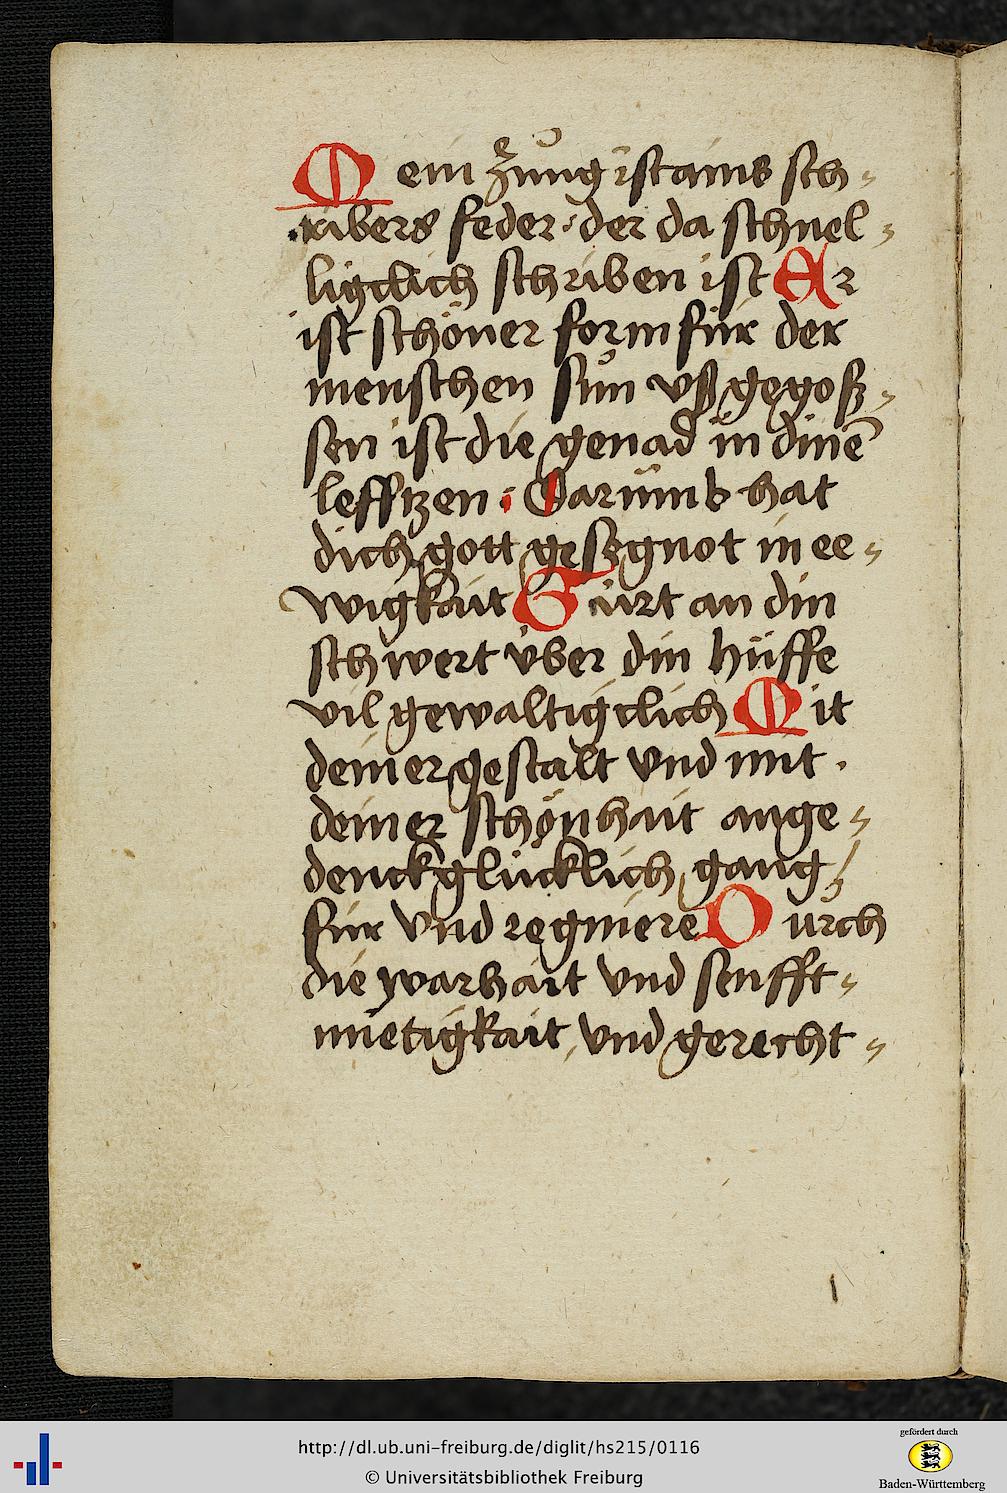 Mein zung ist ains sch„
ribers feder · der da schnel„
ligclich schriben ist Er
ist schöner form für der
menschen sün vßgegoß„
sen ist die genad in dinē
lefftzen · Darumb hat
dich gott gesegnot in ee„
wigkait Gürt an din
schwert über din hüffe
vil gewaltigclich Mit
deiner gestalt vnd mit ·
deiner schönhait ange„
denck glücklich gang
für vnd regniere Durch
die warhait vnd senfft„
mietigkait vnd gerecht„
http://dl.ub.uni-freiburg.de/diglit/hs215/0116
© Universitätsbibliothek Freiburg
gefördert durch
Baden-Württemberg